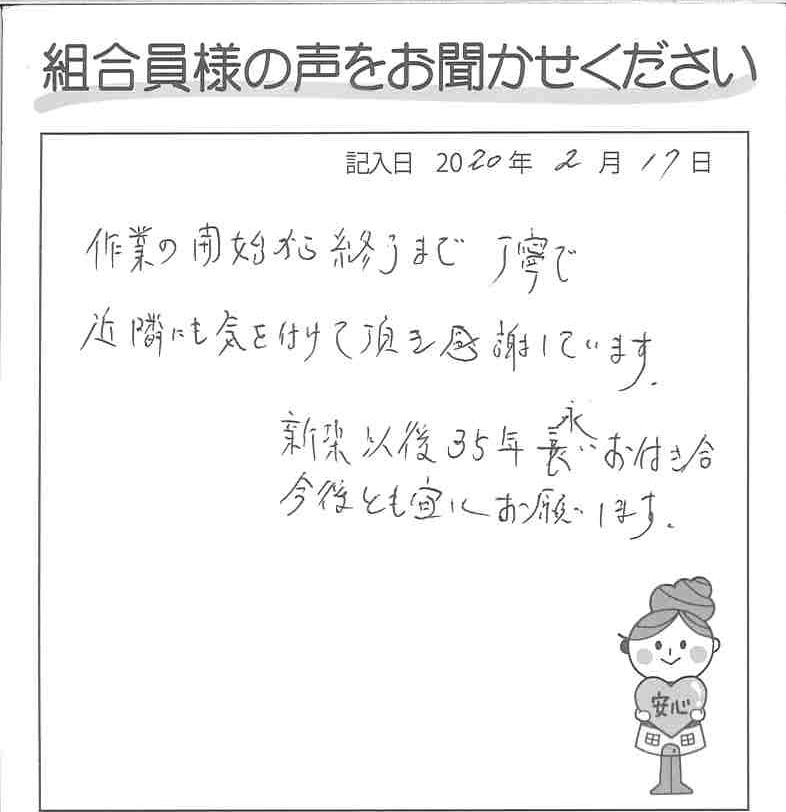 組合員様の声をお聞かせください
記入日 2020年 2月 17日
作業の開始から終了まで 丁寧で
近隣にも気を付けて頂き感謝しています.
新築以後35年永いお付き合
今後とも宜しくお願いします.
安心